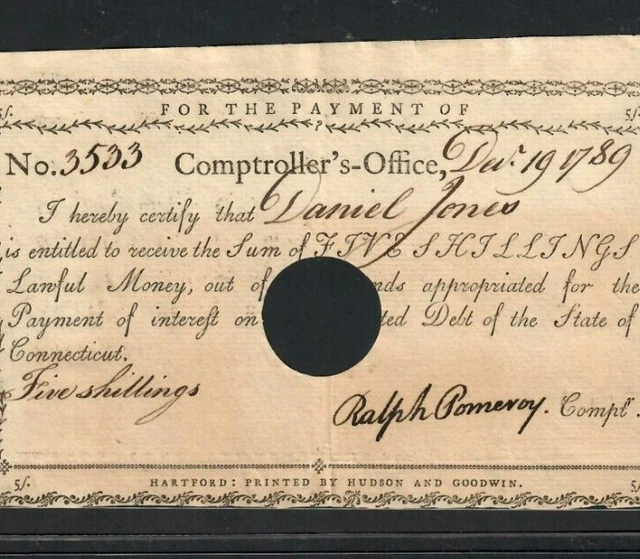 FOR THE PAYMENT OF
5/. 5/.
No. 3533 Comptroller's-Office, Decr. 19 1789
I hereby certify that Daniel Jones
is entitled to receive the Sum of FIVE SHILLINGS
Lawful Money, out of nds appropriated for the
Payment of interest on ted Debt of the State of
Connecticut.
Five shillings
Ralph Pomeroy. Comptr.
5/. HARTFORD: PRINTED BY HUDSON AND GOODWIN. 5/.